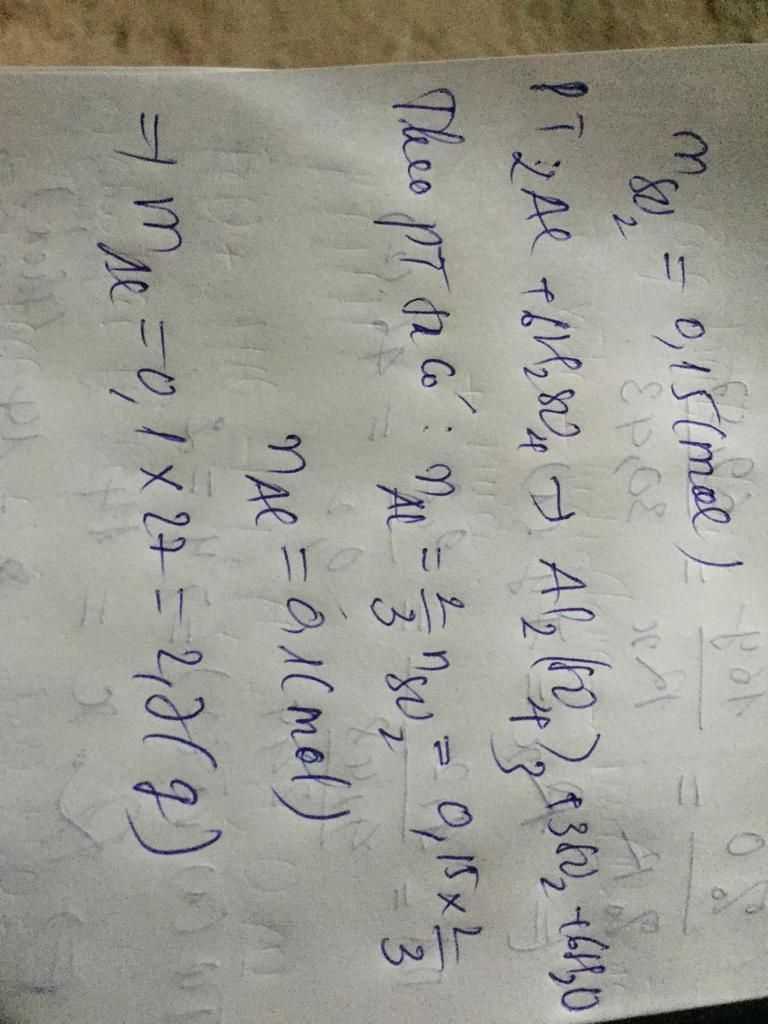 n SO2 = 0,15 (mol)
PT: 2Al + 6H2SO4 → Al2(SO4)3 + 3SO2 + 6H2O
Theo PT ta có: nAl = 2/3 nSO2 = 0,15 x 2/3
nAl = 0,1 (mol)
=> mAl = 0,1 x 27 = 2,7 (g)